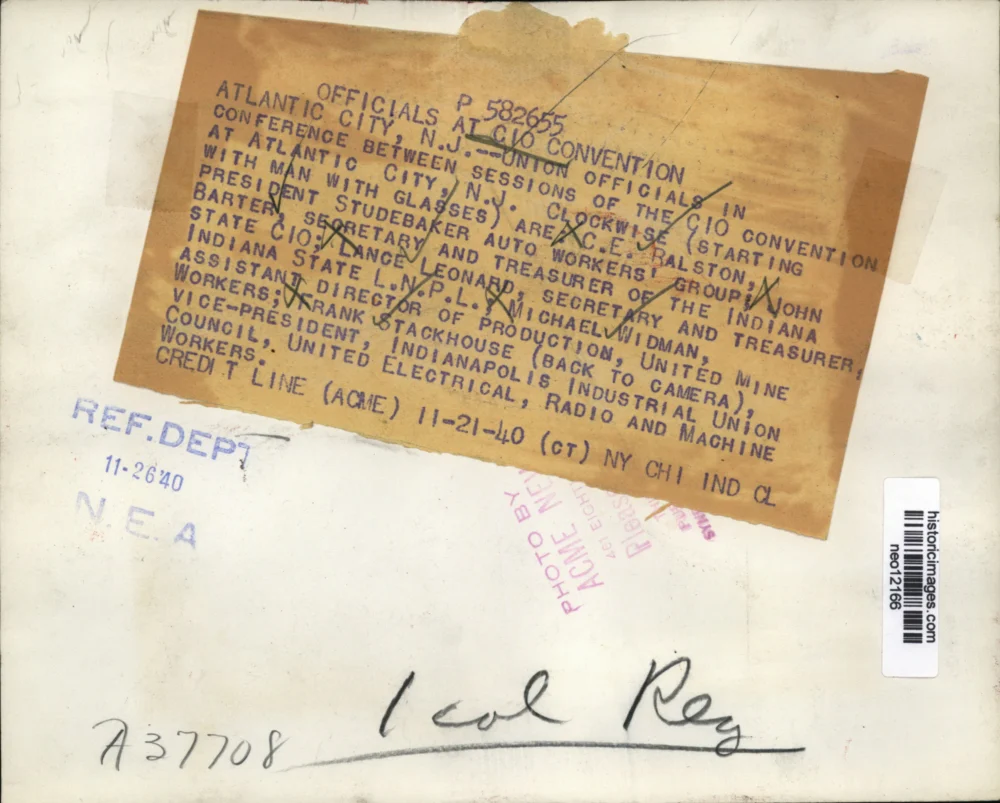 P 582655
OFFICIALS AT CIO CONVENTION
ATLANTIC CITY, N.J.--UNION OFFICIALS IN
CONFERENCE BETWEEN SESSIONS OF THE CIO CONVENTION
AT ATLANTIC CITY, N.J. CLOCKWISE (STARTING
WITH MAN WITH GLASSES) ARE C.E. RALSTON,
PRESIDENT STUDEBAKER AUTO WORKERS' GROUP; JOHN
BARTER, SECRETARY AND TREASURER OF THE INDIANA
STATE CIO; LANCE LEONARD, SECRETARY AND TREASURER,
INDIANA STATE L.N.P.L.; MICHAEL WIDMAN,
ASSISTANT DIRECTOR OF PRODUCTION, UNITED MINE
WORKERS; FRANK STACKHOUSE (BACK TO CAMERA),
VICE-PRESIDENT, INDIANAPOLIS INDUSTRIAL UNION
COUNCIL, UNITED ELECTRICAL, RADIO AND MACHINE
WORKERS.
CREDIT LINE (ACME) 11-21-40 (CT) NY CHI IND CL
REF. DEPT
11-26'40
N. E. A
PHOTO BY
ACME NEW
461 EIGHT
Please
historicimages.com
neo12166
1 col Reg
A37708